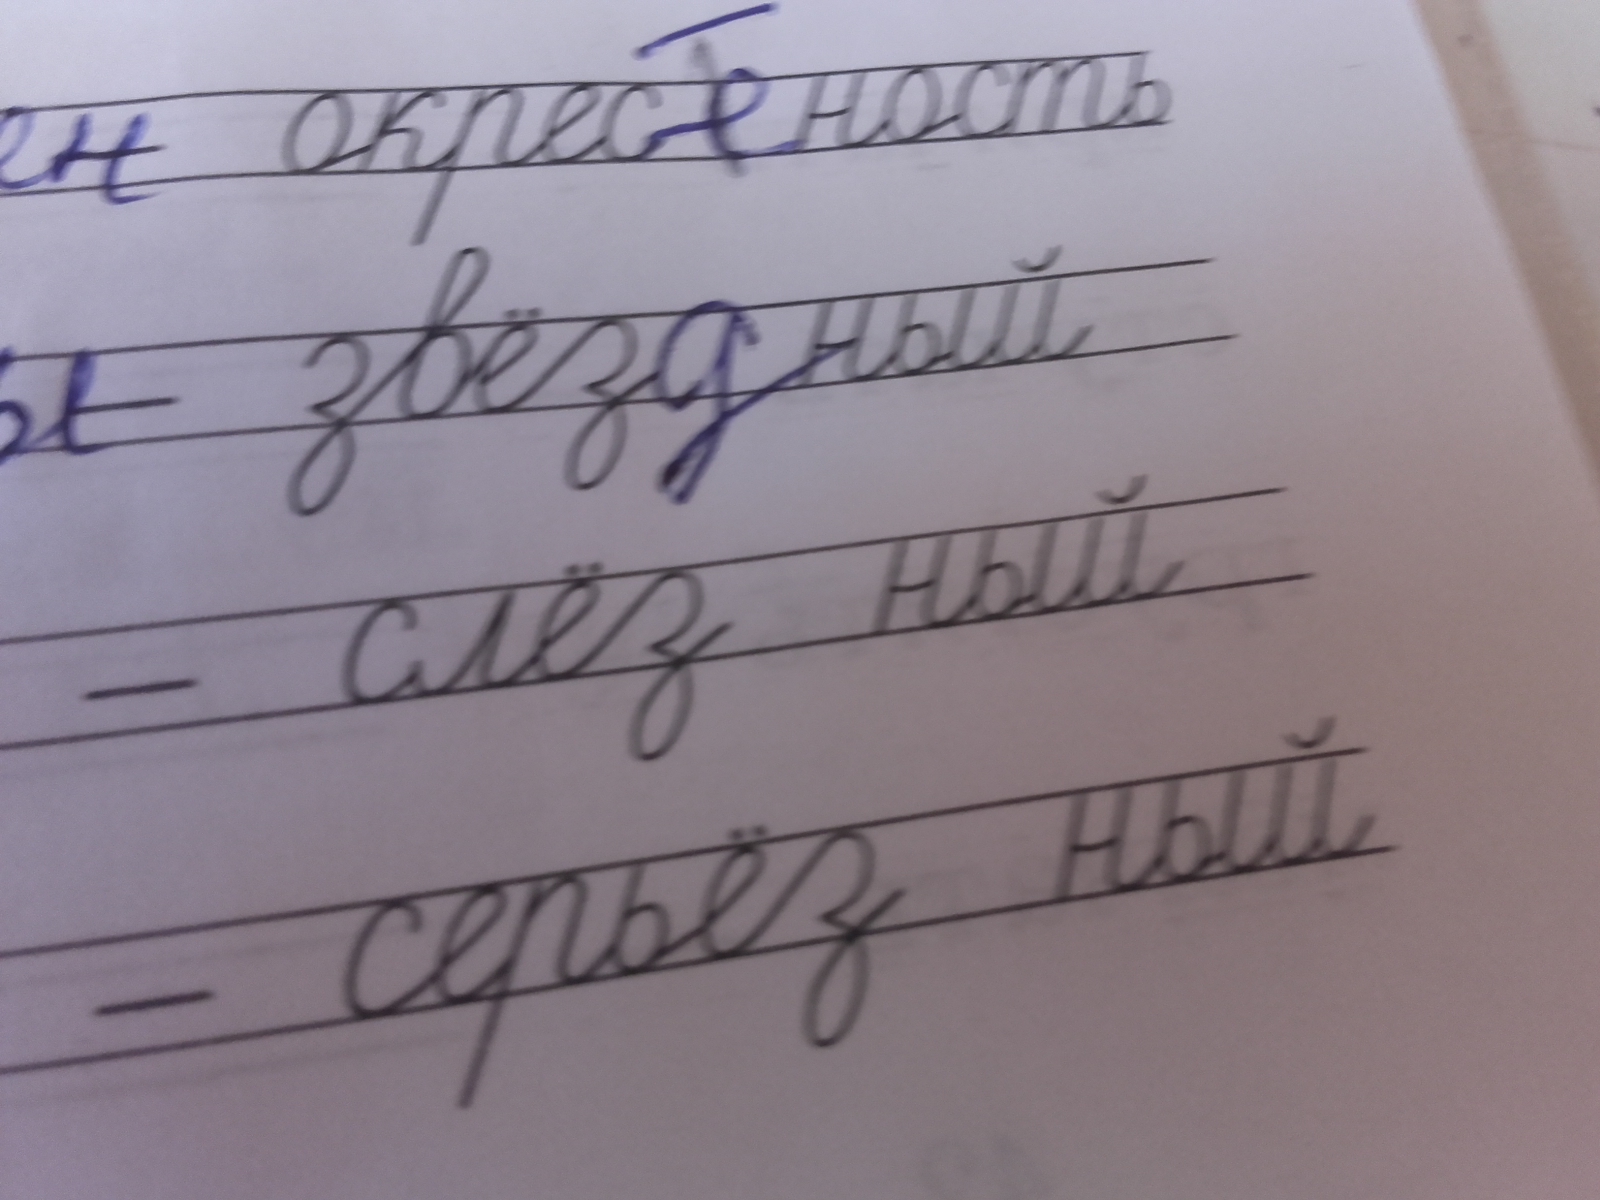 ен окрестность
ы - звёздный
- слёз ный
- серьёз ный